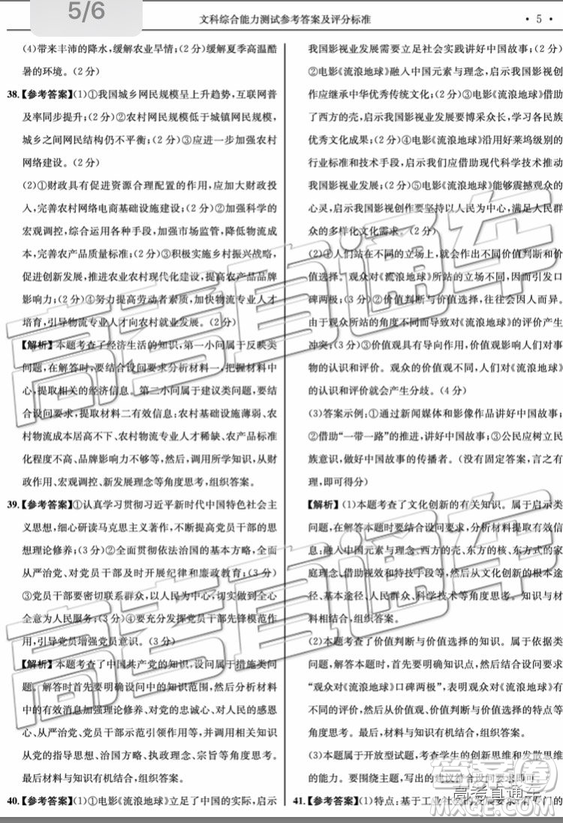 5/6
文科综合能力测试参考答案及评分标准
· 5 ·
(4)带来丰沛的降水,缓解农业旱情;(2分)缓解夏季高温酷
暑的环境。(2分)
38.【参考答案】(1)①我国城乡网民规模呈上升趋势,互联网普
及率同步提升;(2分)②农村网民规模低于城镇网民规模,
城乡之间网民结构仍不平衡;(2分)③应进一步加强农村
网络建设。(2分)
(2)①财政具有促进资源合理配置的作用,应加大财政投
入,完善农村网络电商基础设施建设;(2分)②加强科学的
宏观调控,综合运用各种手段,加强市场监管,降低物流成
本,完善农产品质量标准;(2分)③积极实施乡村振兴战略,
促进改革创新,推进农业农村现代化建设,提高农产品品牌
影响力;(2分)④努力提高劳动者素质,加快物流专业人才
培育,引导物流专业人才向农村就业发展。(2分)
【解析】本题考查了经济生活的知识,第一小问属于反映类
问题,在解答时,要结合设问要求分析材料一,把握材料中
心,提取相关的经济信息。第二小问属于建议类问题,要结
合设问要求,提取材料二有效信息:农村基础设施薄弱、农
村物流成本居高不下、农村物流专业人才稀缺、农产品标准
化程度不高、品牌影响力不够等,然后调用所学知识,从财
政作用、宏观调控、新发展理念等角度思考,组织答案。
39.【参考答案】①认真学习贯彻习近平新时代中国特色社会主
义思想,细心研读马克思主义著作,不断提高党员干部的思
想理论修养;(3分)②全面贯彻依法治国的基本方略,全面
从严治党,对党员干部及时开展纪律和廉政教育;(3分)
③党员干部要密切联系群众,以人民为中心,切实做到全心
全意为人民服务;(3分)④要充分发挥党员干部模范带头作
用,引导党员增强党员意识。(3分)
【解析】本题考查了中国共产党的知识,设问属于措施类问
题。解答时首先要明确设问中的知识范围,然后分析材料
中的有效信息,如对党的忠诚心、对人民的感恩
心、干净干事、发挥典型引领示范作用等,最后要从
党的指导思想、治国方略、执政理念、宗旨等角度思考。
最后材料与知识有机结合,组织答案。
40.【参考答案】(1)①电影《流浪地球》立足了中国的实际,启示
我国影视业发展需要立足社会实践讲好中国故事;(2分)
②电影《流浪地球》融入中国元素与理念,启示我国影视创
作应继承中华优秀传统文化;(3分)③电影《流浪地球》借鉴
了西方的壳,启示我国影视业发展要博采众长,学习各民族
优秀文化成果;(2分)④电影《流浪地球》沿用好莱坞级别的
行业标准和技术手段,启示我们应借助现代科学技术推动
我国影视业发展;(2分)⑤电影《流浪地球》能够震撼观众的
心灵,启示我国影视创作要坚持以人民为中心,满足人民群
众的多样化文化需求。(2分)
(2)①人们站在不同的立场上,就会作出不同的价值判断价
值选择。观众对《流浪地球》所站的立场不同,因而引发口
碑两极;(3分)②价值判断与价值选择,往往会因人而异。
由于观众所站的角度不同而导致对《流浪地球》的评价产生
冲突;(3分)③价值观具有导向作用,价值观影响人们对事
物的认识和评价。观众价值观不同,导致对《流浪地球》
的认识和评价就会产生分歧。(4分)
(3)答案示例:①通过新闻媒体和影像作品讲好中国故事;
②借助“一带一路”的推进,讲好中国故事;③公民应树立民
族意识,做好中国故事的传播者。(没有固定答案,言之有
理,即可得分)
【解析】(1)本题考查了文化创新的有关知识。属于启示类
问题,在解答本题时要结合设问要求,分析材料提取有效信
息:融入中国元素与理念、西方的壳、东方的核、东方式的家
庭理念、借助视效和特技手段等,然后从文化创新的根本途
径、基本途径、人民群众、科学技术等角度思考,材料与知识
相结合,组织答案。
(2)本题考查了价值判断与价值选择的知识。属于依据类
问题,在解答本题时要从价值观的角度思考。结合设问要求
“观众对《流浪地球》口碑两极”,表明观众对《流浪地球》有
不同的评价,然后从价值观、价值判断与价值选择等角度思
考。最后,材料与知识有机结合,组织答案。
(3)本题属于开放型试题,考查学生的创新思维和发散思维
的能力。要围绕主题,
41.【参考答案】(1)特点:基于工业
高考直通车